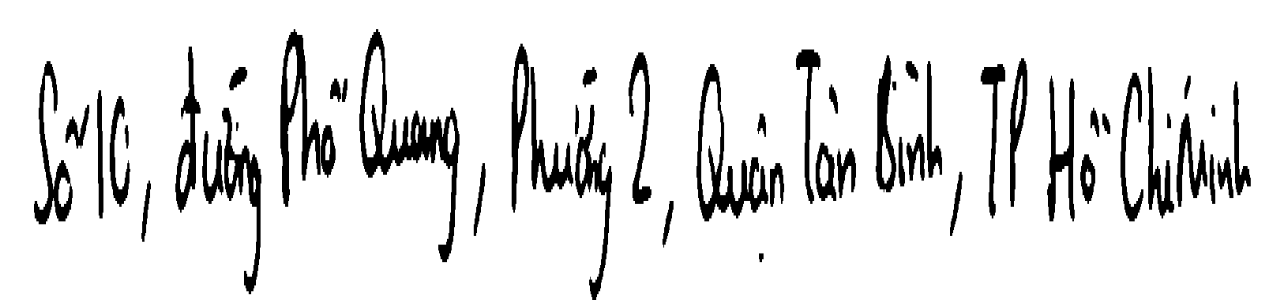 Số 10, đường Phổ Quang, Phường 2, Quận Tân Bình, TP Hồ Chí Minh